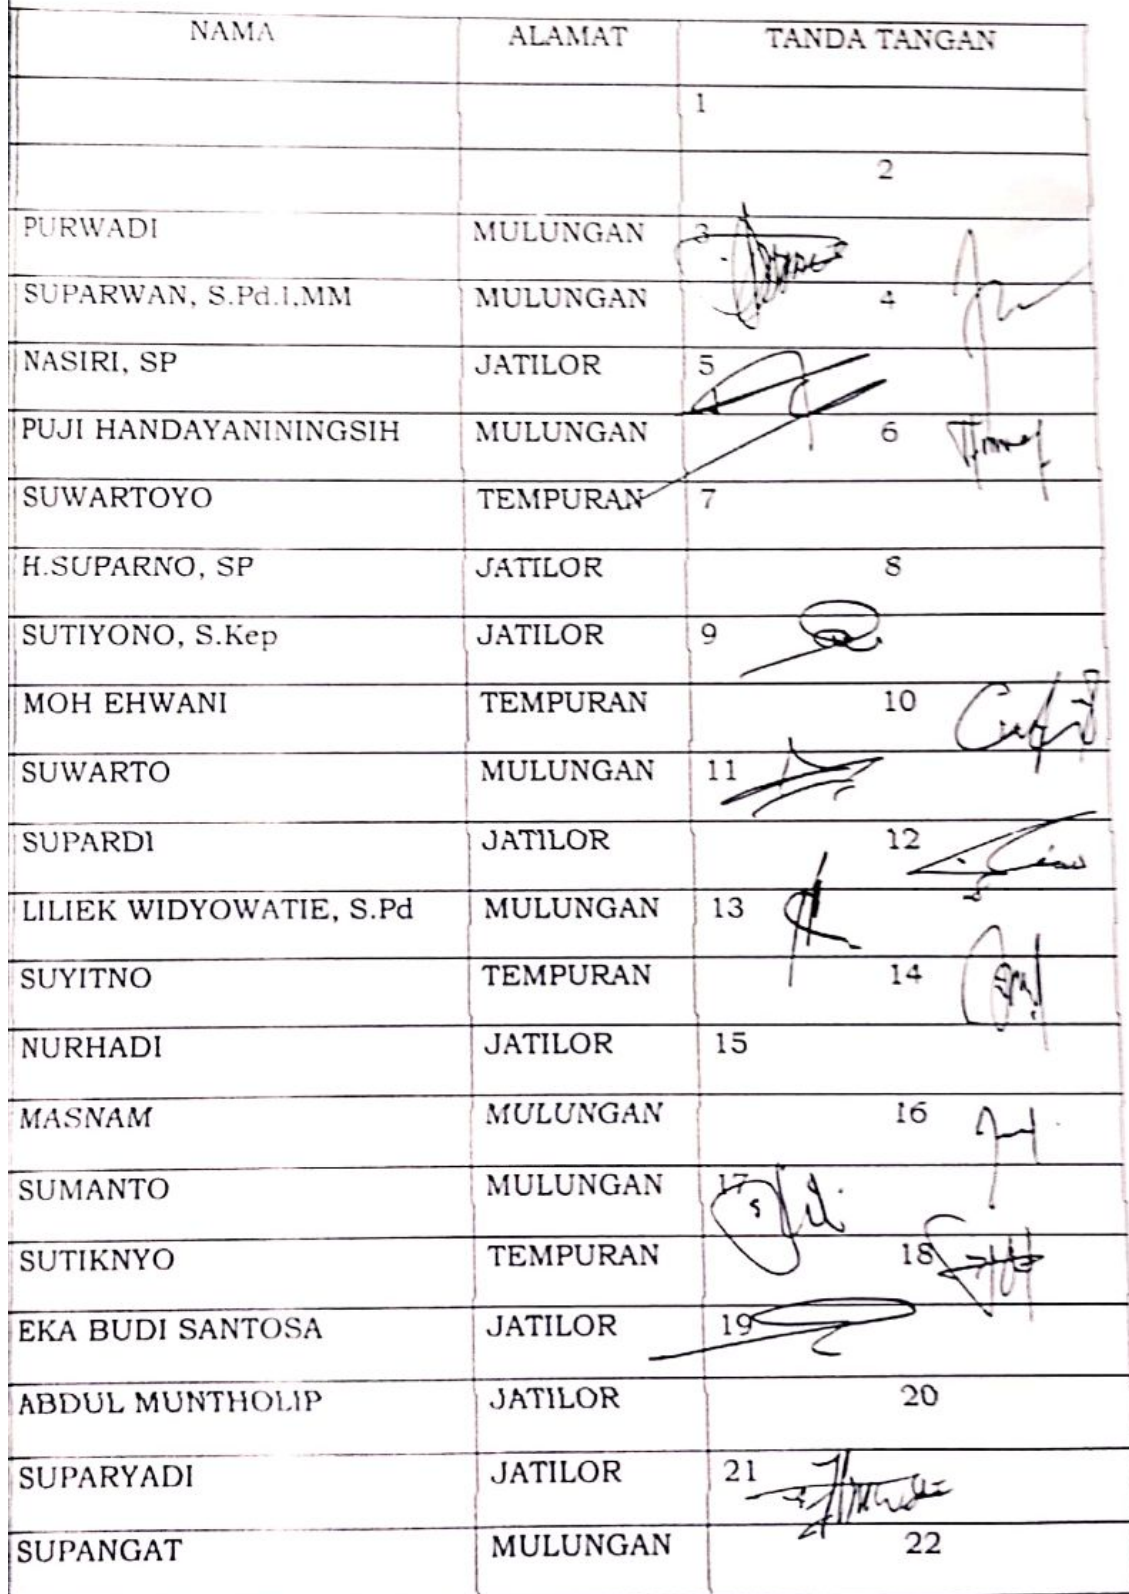 NAMA ALAMAT TANDA TANGAN
1
2
PURWADI MULUNGAN 3
SUPARWAN, S.Pd.I,MM MULUNGAN 4
NASIRI, SP JATILOR 5
PUJI HANDAYANININGSIH MULUNGAN 6
SUWARTOYO TEMPURAN 7
H.SUPARNO, SP JATILOR 8
SUTIYONO, S.Kep JATILOR 9
MOH EHWANI TEMPURAN 10
SUWARTO MULUNGAN 11
SUPARDI JATILOR 12
LILIEK WIDYOWATIE, S.Pd MULUNGAN 13
SUYITNO TEMPURAN 14
NURHADI JATILOR 15
MASNAM MULUNGAN 16
SUMANTO MULUNGAN 17
SUTIKNYO TEMPURAN 18
EKA BUDI SANTOSA JATILOR 19
ABDUL MUNTHOLIP JATILOR 20
SUPARYADI JATILOR 21
SUPANGAT MULUNGAN 22